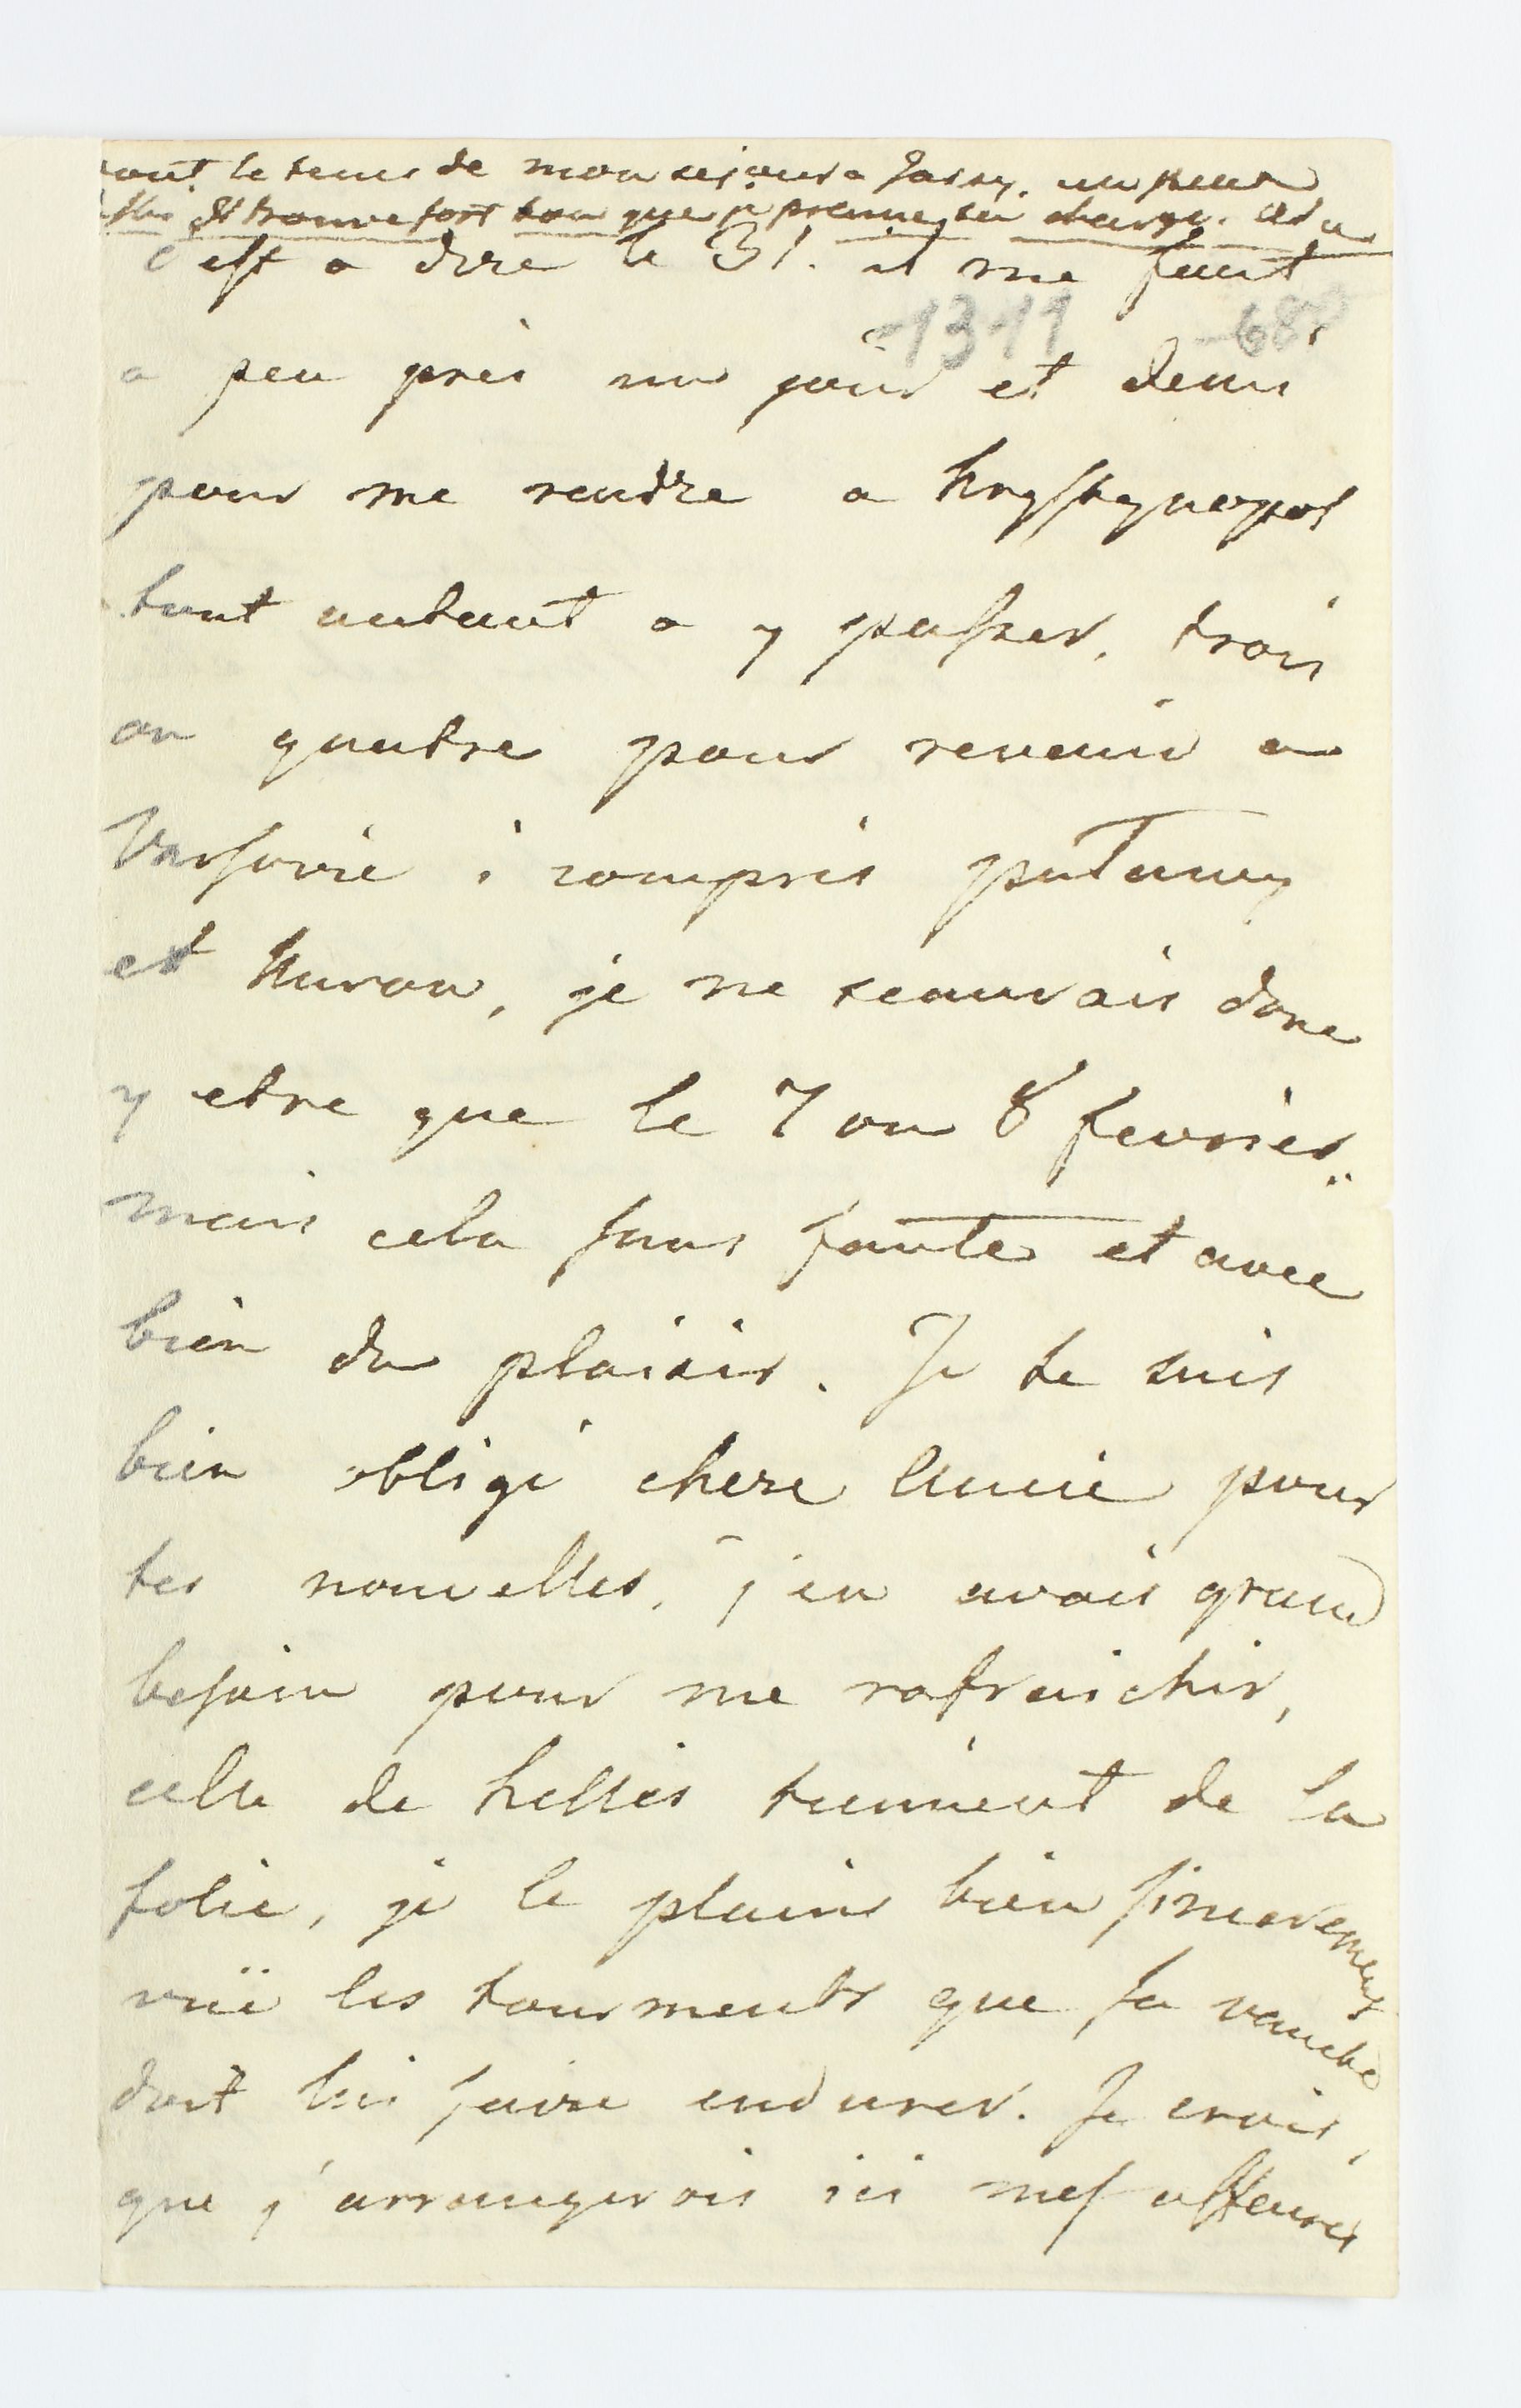 tout le tems de mon sejour a Jassy. un peu
Il trouve fort bon que je prenne sa charge.
c'est a dire le 31. il me faut
1311 68
a peu près un jour et demi
pour me rendre a Krystynopol
tout autant a y passer, trois
ou quatre pour revenir a
Varsovie i compris pulawy
et Kurow, je ne scaurais donc
y etre que le 7 ou 8 fevrier.
mais cela sans faute et avec
bien du plaisir. Je te suis
bien obligé chere Amie pour
tes nouvelles, j'en avais grand
besoin pour me rafraichir,
celle de tiennent de la
folie, je le plains bien sincerement
vüe les tourments que sa
doit lui faire endurer. Je crois,
que j'arrangerois ici mes affaires